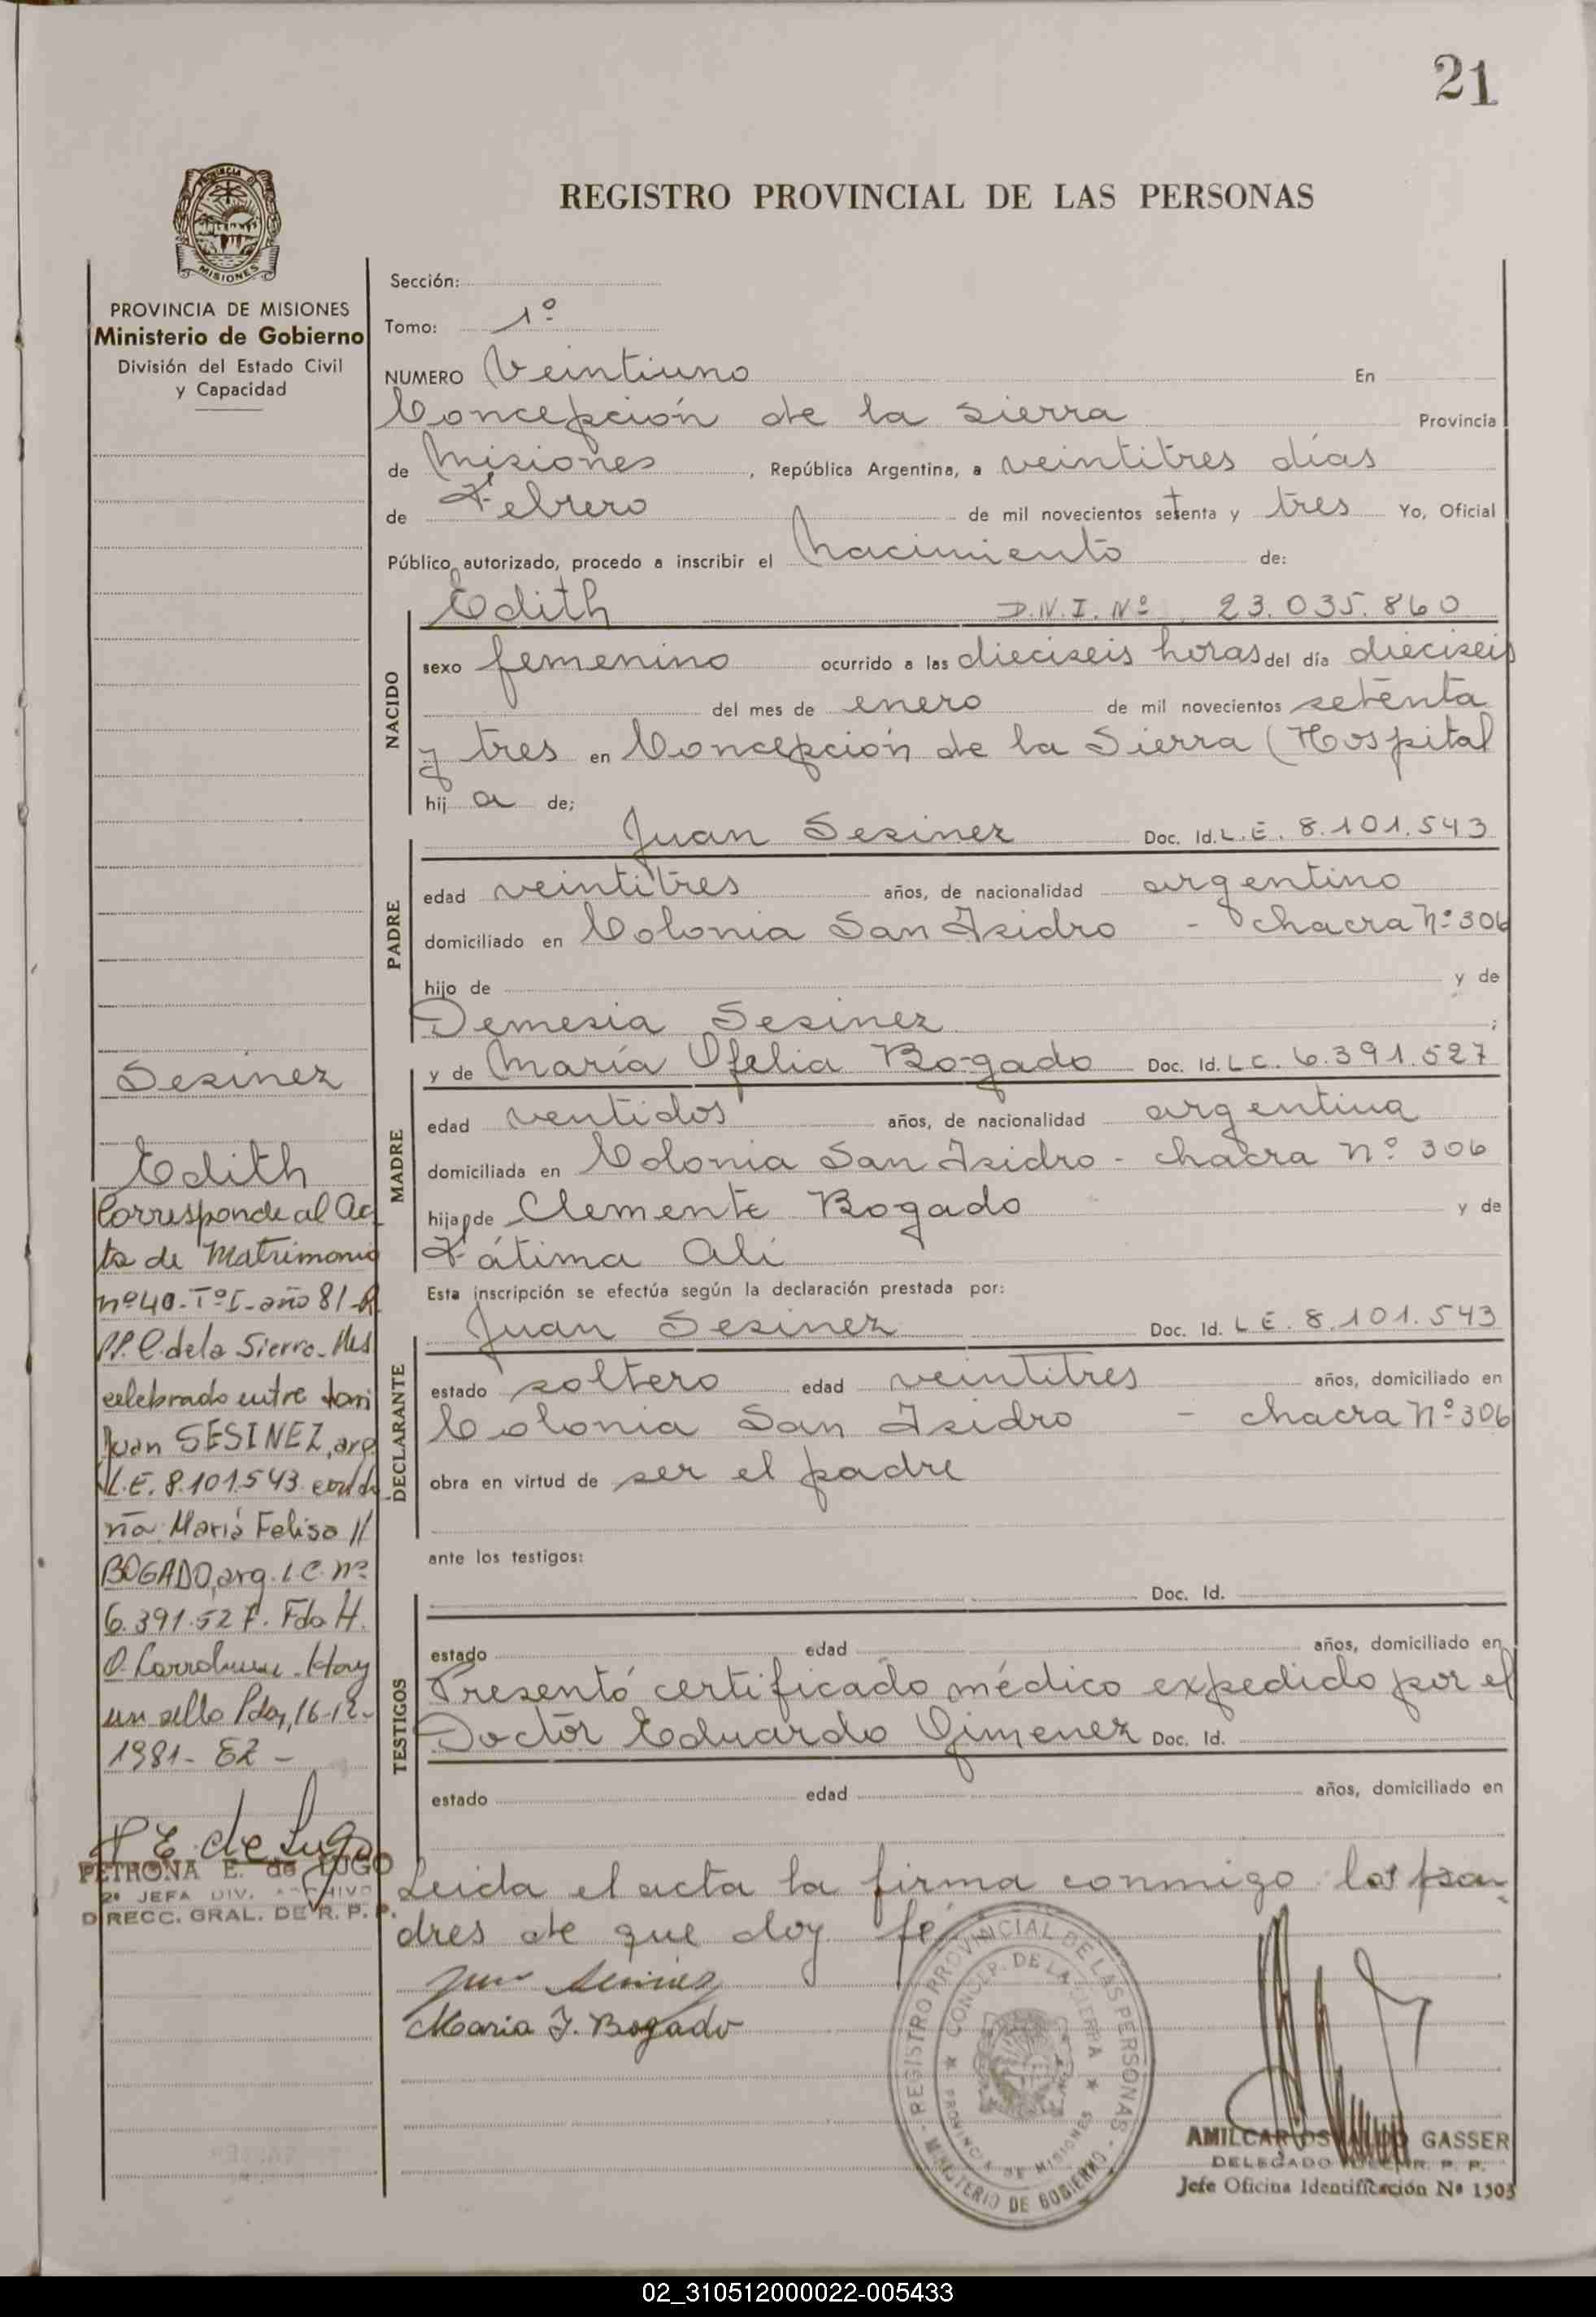 21
REGISTRO PROVINCIAL DE LAS PERSONAS
PROVINCIA DE MISIONES
Ministerio de Gobierno
División del Estado Civil
y Capacidad
Sesinez
Edith
Corresponde al Ac
ta de Matrimonio
nº 40-Tº I-año 81-R
PP. C. de la Sierra-Mes
celebrado entre don
Juan SESINEZ, arg.
L.E. 8.101.543 con do
ña María Felisa //
BOGADO, arg. L.C. nº
6.391.527. Fdo H.
O. Hay
un sello Pdas, 16-12-
1981- EZ -
P E. de Lugo
PETRONA E. de LUGO
2º JEFA DIV. ARCHIVO
DIRECC. GRAL. DE R. P. P.
Sección:
Tomo: 1º
NUMERO Veintiuno En
Concepción de la Sierra Provincia
de Misiones, República Argentina, a veintitres días
de Febrero de mil novecientos setenta y tres Yo, Oficial
Público autorizado, procedo a inscribir el Nacimiento de:
NACIDO
Edith D.N.I. Nº 23.035.860
sexo femenino ocurrido a las dieciseis horas del día dieciseis
del mes de enero de mil novecientos setenta
y tres en Concepción de la Sierra (Hospital
hij a de;
PADRE
Juan Sesinez Doc. Id. L.E. 8.101.543
edad veintitres años, de nacionalidad argentino
domiciliado en Colonia San Isidro - chacra Nº 306
hijo de y de
Demesia Sesinez ;
MADRE
y de María Ofelia Bogado Doc. Id. L C. 6.391.527
edad ventidos años, de nacionalidad argentina
domiciliada en Colonia San Isidro - chacra Nº 306
hija de Clemente Bogado y de
Fátima Alí
Esta inscripción se efectúa según la declaración prestada por:
DECLARANTE
Juan Sesinez Doc. Id. L E. 8.101.543
estado soltero edad veintitres años, domiciliado en
Colonia San Isidro - chacra Nº 306
obra en virtud de ser el padre
ante los testigos:
TESTIGOS
Doc. Id.
estado edad años, domiciliado en
Presentó certificado médico expedido por el
Doctor Eduardo Gimenez Doc. Id.
estado edad años, domiciliado en
Leida el acta la firma conmigo los pa-
dres de que doy fé
Juan Sesinez
Maria F. Bogado
REGISTRO PROVINCIAL DE LAS PERSONAS
CONCEP. DE LA SIERRA
PROVINCIA DE MISIONES
MINISTERIO DE GOBIERNO
AMILCAR OSVALDO GASSER
DELEGADO R. P. P.
Jefe Oficina Identificación Nº 1303
02_310512000022-005433